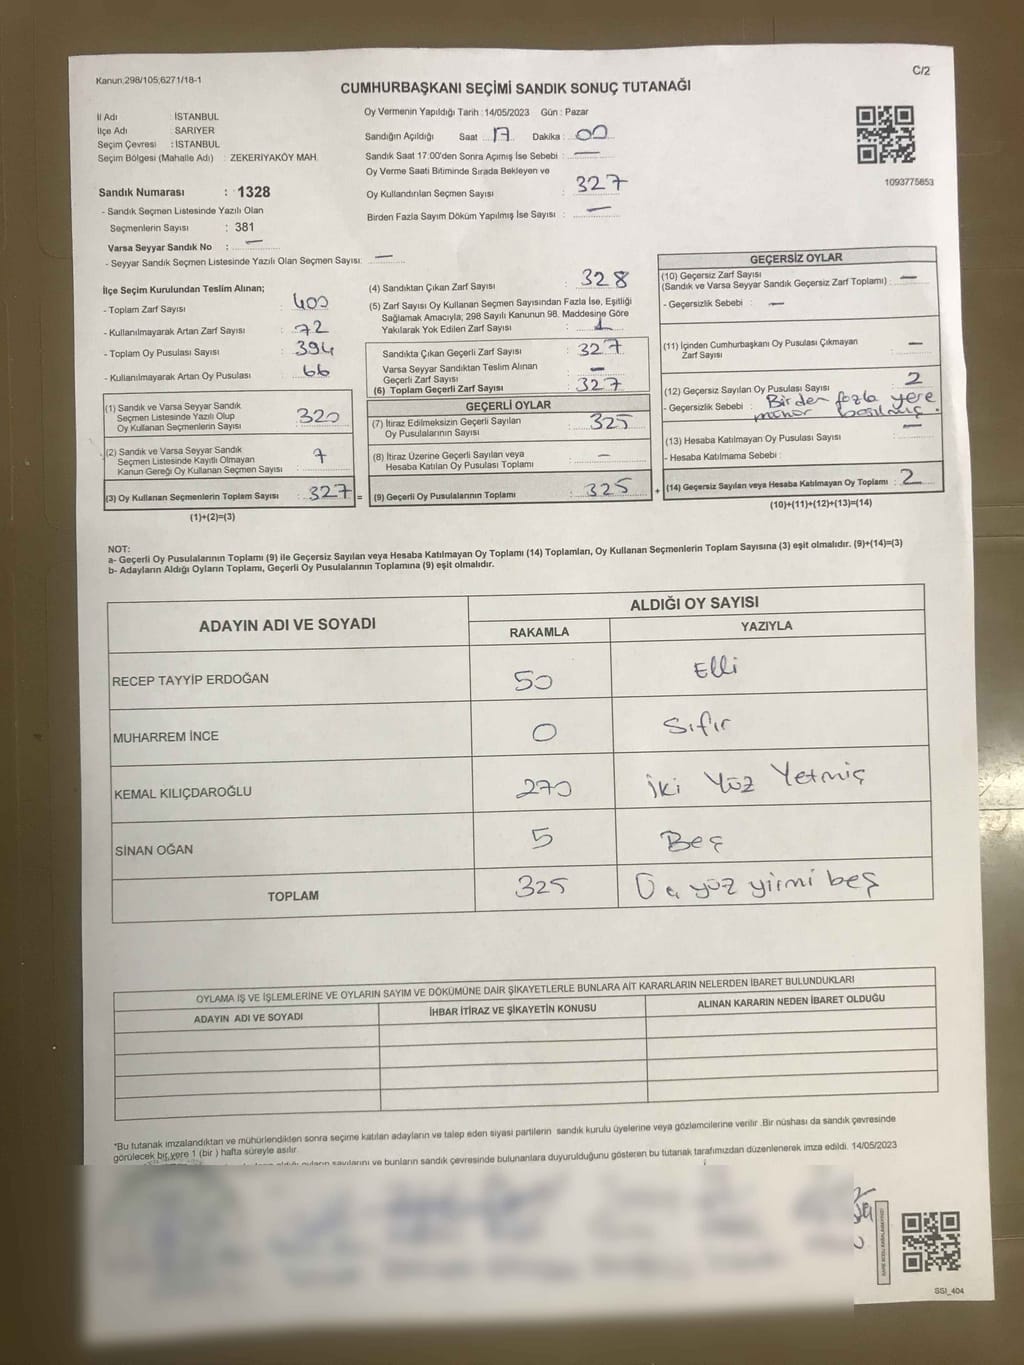 Kanun:298/105,6271/18-1
C/2
CUMHURBAŞKANI SEÇİMİ SANDIK SONUÇ TUTANAĞI
İl Adı : İSTANBUL
İlçe Adı : SARIYER
Seçim Çevresi : İSTANBUL
Seçim Bölgesi (Mahalle Adı) : ZEKERİYAKÖY MAH.
Oy Vermenin Yapıldığı Tarih : 14/05/2023 Gün : Pazar
Sandığın Açıldığı Saat 17 Dakika : 00
Sandık Saat 17:00'den Sonra Açımış İse Sebebi : —
Oy Verme Saati Bitiminde Sırada Bekleyen ve
Oy Kullandırılan Seçmen Sayısı : 327
Birden Fazla Sayım Döküm Yapılmış İse Sayısı : —
1093775653
Sandık Numarası : 1328
- Sandık Seçmen Listesinde Yazılı Olan
Seçmenlerin Sayısı : 381
Varsa Seyyar Sandık No : —
- Seyyar Sandık Seçmen Listesinde Yazılı Olan Seçmen Sayısı: —
İlçe Seçim Kurulundan Teslim Alınan;
- Toplam Zarf Sayısı : 400
- Kullanılmayarak Artan Zarf Sayısı : 72
- Toplam Oy Pusulası Sayısı : 394
- Kullanılmayarak Artan Oy Pusulası : 66
(1) Sandık ve Varsa Seyyar Sandık
Seçmen Listesinde Yazılı Olup
Oy Kullanan Seçmenlerin Sayısı : 320
(2) Sandık ve Varsa Seyyar Sandık
Seçmen Listesinde Kayıtlı Olmayan
Kanun Gereği Oy Kullanan Seçmen Sayısı : 7
(3) Oy Kullanan Seçmenlerin Toplam Sayısı : 327 =
(1)+(2)=(3)
(4) Sandıktan Çıkan Zarf Sayısı : 328
(5) Zarf Sayısı Oy Kullanan Seçmen Sayısından Fazla İse, Eşitliği
Sağlamak Amacıyla; 298 Sayılı Kanunun 98. Maddesine Göre
Yakılarak Yok Edilen Zarf Sayısı : 1
Sandıkta Çıkan Geçerli Zarf Sayısı : 327
Varsa Seyyar Sandıktan Teslim Alınan
Geçerli Zarf Sayısı : —
(6) Toplam Geçerli Zarf Sayısı : 327
GEÇERLİ OYLAR
(7) İtiraz Edilmeksizin Geçerli Sayılan
Oy Pusulalarının Sayısı : 325
(8) İtiraz Üzerine Geçerli Sayılan veya
Hesaba Katılan Oy Pusulası Toplamı : —
(9) Geçerli Oy Pusulalarının Toplamı : 325 +
GEÇERSİZ OYLAR
(10) Geçersiz Zarf Sayısı
(Sandık ve Varsa Seyyar Sandık Geçersiz Zarf Toplamı) : —
- Geçersizlik Sebebi : —
(11) İçinden Cumhurbaşkanı Oy Pusulası Çıkmayan
Zarf Sayısı : —
(12) Geçersiz Sayılan Oy Pusulası Sayısı : 2
- Geçersizlik Sebebi : Birden fazla yere
mühür basılmış.
(13) Hesaba Katılmayan Oy Pusulası Sayısı : —
- Hesaba Katılmama Sebebi :
(14) Geçersiz Sayılan veya Hesaba Katılmayan Oy Toplamı : 2
(10)+(11)+(12)+(13)=(14)
NOT:
a- Geçerli Oy Pusulalarının Toplamı (9) ile Geçersiz Sayılan veya Hesaba Katılmayan Oy Toplamı (14) Toplamları, Oy Kullanan Seçmenlerin Toplam Sayısına (3) eşit olmalıdır. (9)+(14)=(3)
b- Adayların Aldığı Oyların Toplamı, Geçerli Oy Pusulalarının Toplamına (9) eşit olmalıdır.
ADAYIN ADI VE SOYADI
ALDIĞI OY SAYISI
RAKAMLA YAZIYLA
RECEP TAYYİP ERDOĞAN 50 Elli
MUHARREM İNCE 0 Sıfır
KEMAL KILIÇDAROĞLU 270 İki Yüz Yetmiş
SİNAN OĞAN 5 Beş
TOPLAM 325 Üç yüz yirmi beş
OYLAMA İŞ VE İŞLEMLERİNE VE OYLARIN SAYIM VE DÖKÜMÜNE DAİR ŞİKAYETLERLE BUNLARA AİT KARARLARIN NELERDEN İBARET BULUNDUKLARI
ADAYIN ADI VE SOYADI İHBAR İTİRAZ VE ŞİKAYETİN KONUSU ALINAN KARARIN NEDEN İBARET OLDUĞU
*Bu tutanak imzalandıktan ve mühürlendikten sonra seçime katılan adayların ve talep eden siyasi partilerin sandık kurulu üyelerine veya gözlemcilerine verilir .Bir nüshası da sandık çevresinde
görülecek bir yere 1 (bir ) hafta süreyle asılır.
sayılarını ve bunların sandık çevresinde bulunanlara duyurulduğunu gösteren bu tutanak tarafımızdan düzenlenerek imza edildi. 14/05/2023
SSI_404